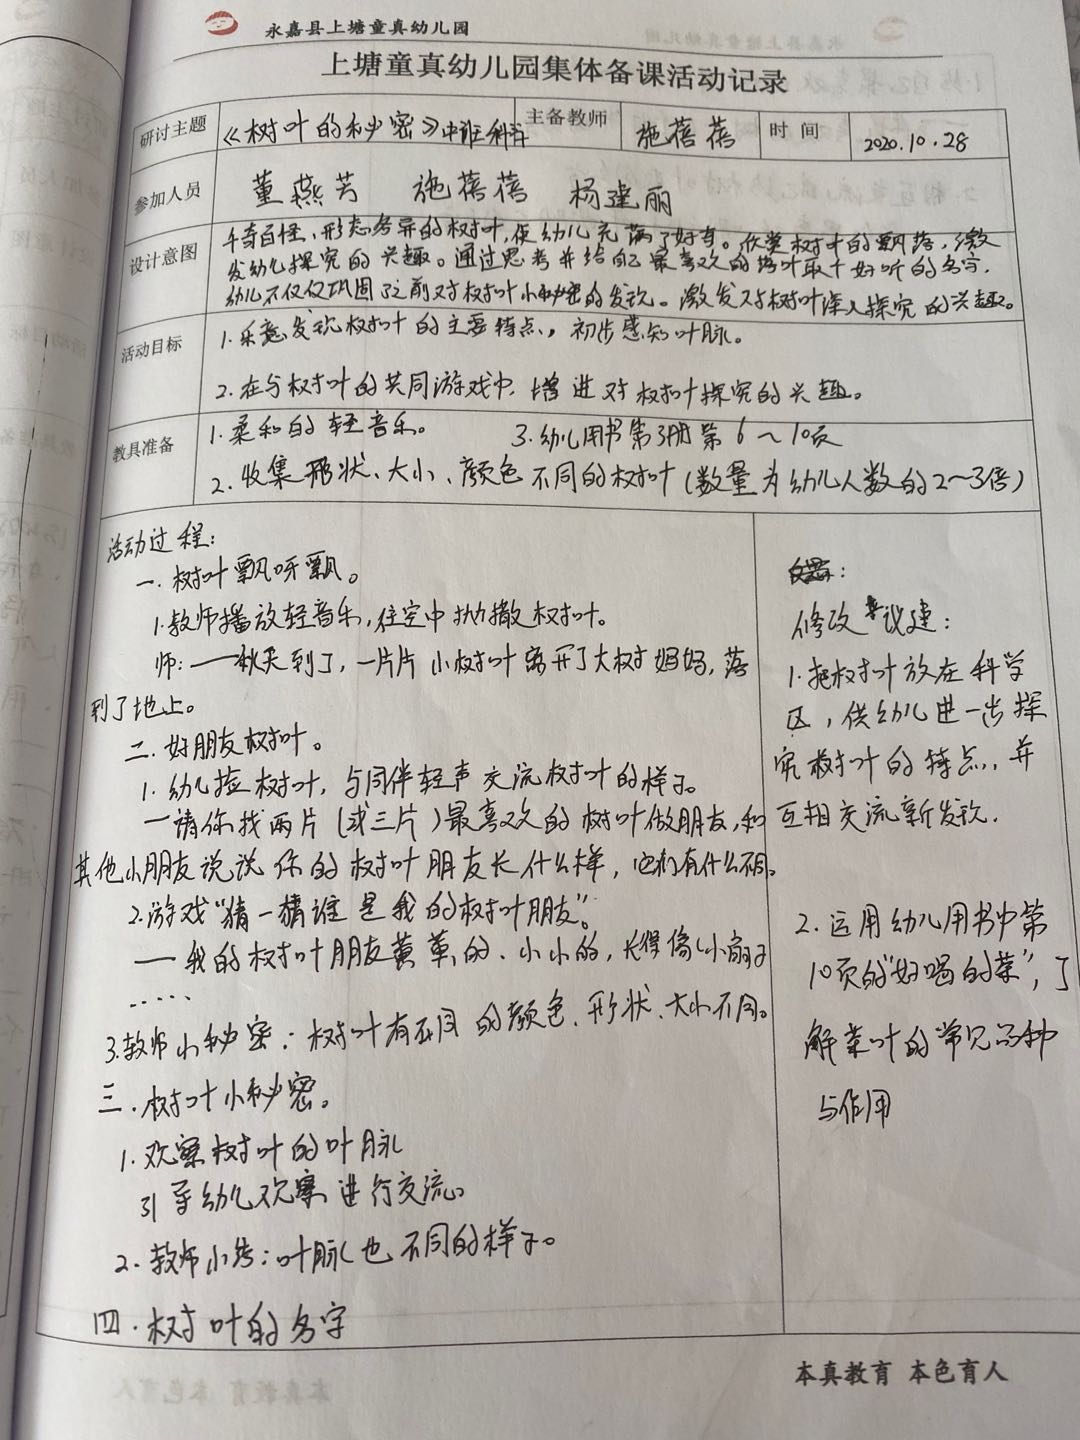 永嘉县上塘童真幼儿园
上塘童真幼儿园集体备课活动记录
研讨主题 《树叶的秘密》中班科学 主备教师 施蓓蓓 时间 2020.10.28
参加人员 董燕芳 施蓓蓓 杨建丽
设计意图 千奇百怪、形态各异的树叶,使幼儿充满了好奇。欣赏树叶的飘落,激
发幼儿探究的兴趣。通过思考并给自己最喜欢的树叶取个好听的名字,
幼儿不仅仅巩固了之前对树叶小秘密的发现。激发对树叶深入探究的兴趣。
活动目标 1.乐意发现树叶的主要特点,初步感知叶脉。
2.在与树叶的共同游戏中,增进对树叶探究的兴趣。
教具准备 1.柔和的轻音乐。 3.幼儿用书第3册第6~10页
2.收集形状、大小、颜色不同的树叶(数量为幼儿人数的2~3倍)
活动过程:
一.树叶飘呀飘。
1.教师播放轻音乐,往空中抛撒树叶。
师:——秋天到了,一片片小树叶离开了大树妈妈,落
到了地上。
二.好朋友树叶。
1.幼儿捡树叶,与同伴轻声交流树叶的样子。
—请你找两片(或三片)最喜欢的树叶做朋友,和
其他小朋友说说你的树叶朋友长什么样,它们有什么不同。
2.游戏"猜一猜谁是我的树叶朋友"。
——我的树叶朋友黄黄的、小小的,长得像小扇子
......
3.教师小秘密:树叶有不同的颜色、形状、大小不同。
三.树叶小秘密。
1.观察树叶的叶脉
引导幼儿观察进行交流。
2.教师小结:叶脉也不同的样子。
四.树叶的名字
修改议建:
1.把树叶放在科学
区,供幼儿进一步探
究树叶的特点,并
互相交流新发现.
2.运用幼儿用书中第
10页的"好喝的菜",了
解菜叶的常见品种
与作用
本真教育 本色育人